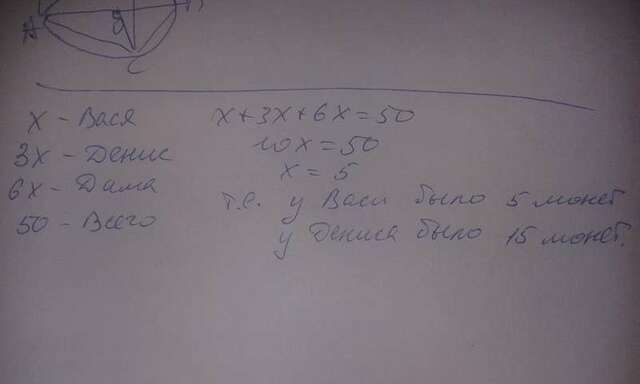 A
C
x - Вася
3x - Денис
6x - Дама
50 - Всего
x+3x+6x=50
10x=50
x=5
т.е. у Васи было 5 монет
у Дениса было 15 монет.